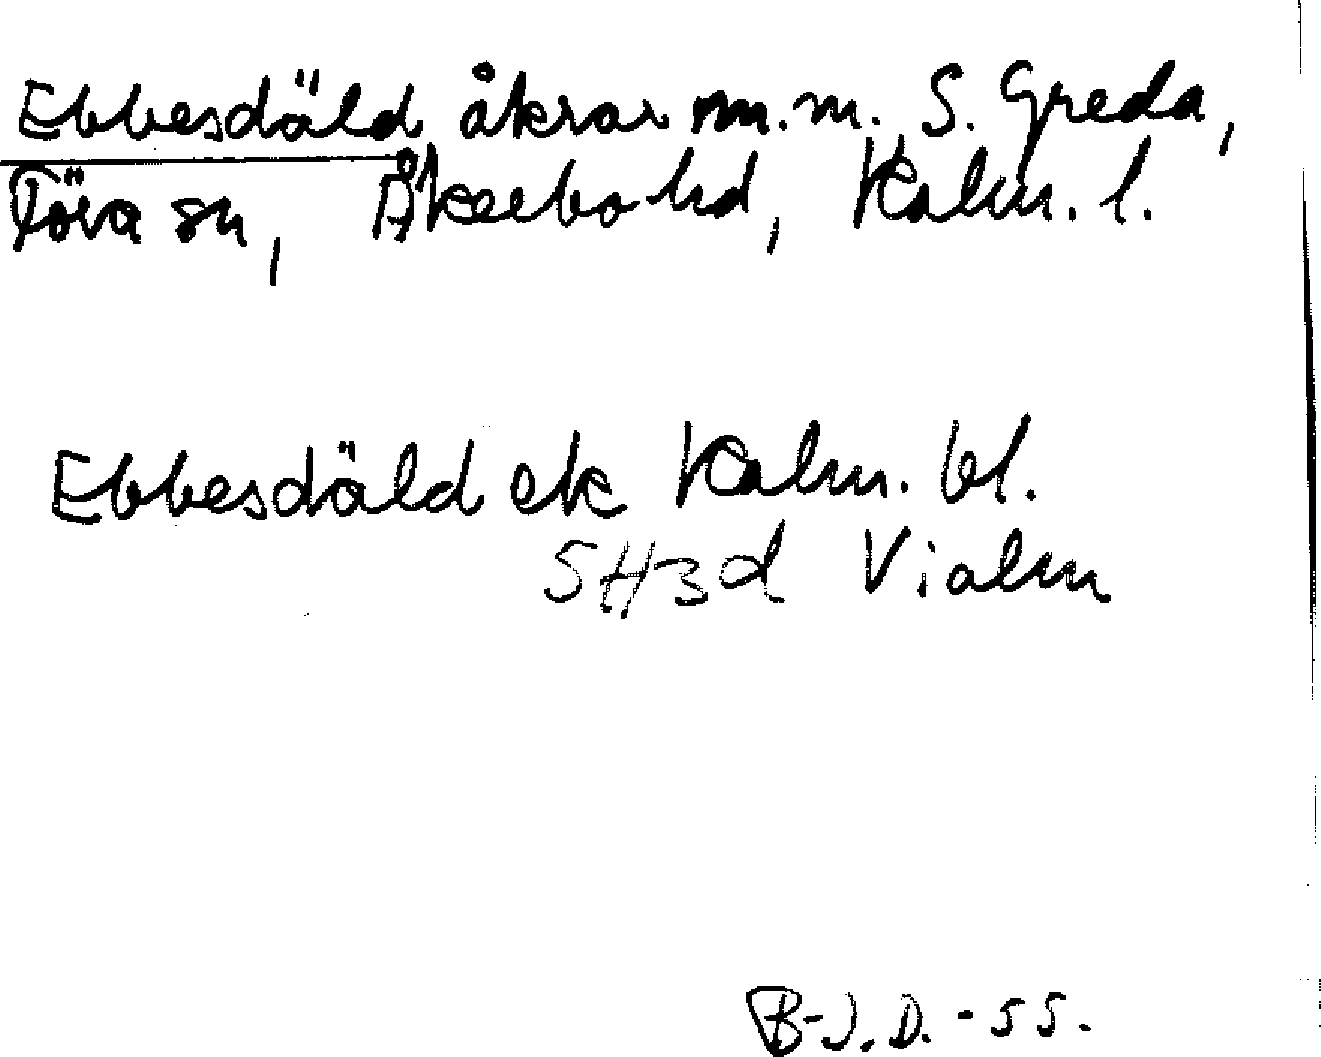 Ebbesdäld åkrar m.m. S. Greda,
Föra sn, Åkerbo hd, Kalm. l.
Ebbesdäld ek Kalm. bl.
5H3d Vialm
B-J.D.-55.